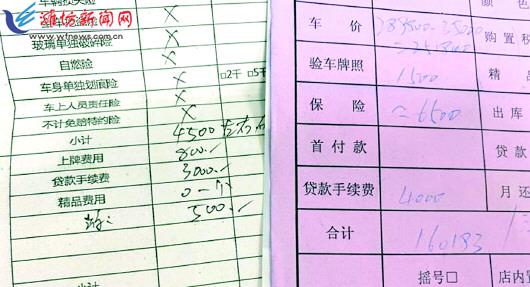 潍坊新闻网
www.wfnews.com.cn
玻璃单独破碎险 X
自燃险 X
车身单独划痕险 X □2千 □5千
车上人员责任险 X
不计免赔特约险 X
小计 4500左右
上牌费用 800
贷款手续费 3000
精品费用 0一个
500
小计
车价 颜色
购置税
验车牌照 1500 精品
保险 ≈6500 出库
首付款 贷款
贷款手续费 4000 月还
合计 160183
摇号□ 店内